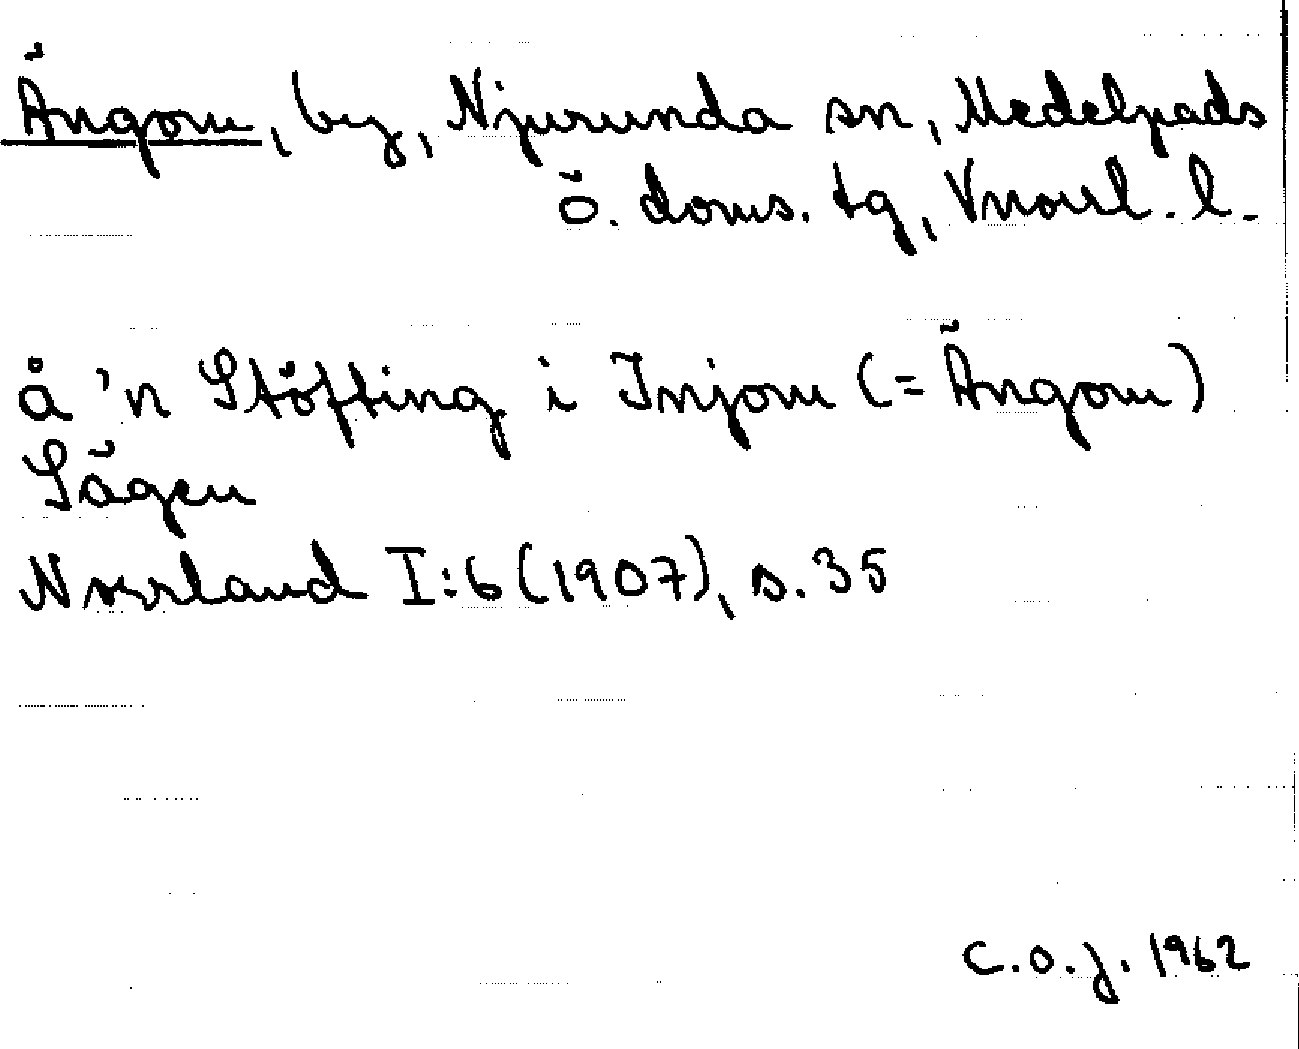 Ängom, by, Njurunda sn, Medelpads
ö. doms. tg, Vnorrl. l.
å 'n Stöfting i Injom (= Ängom)
Sägen
Norrland I:6 (1907), s. 35
C.O.J. 1962